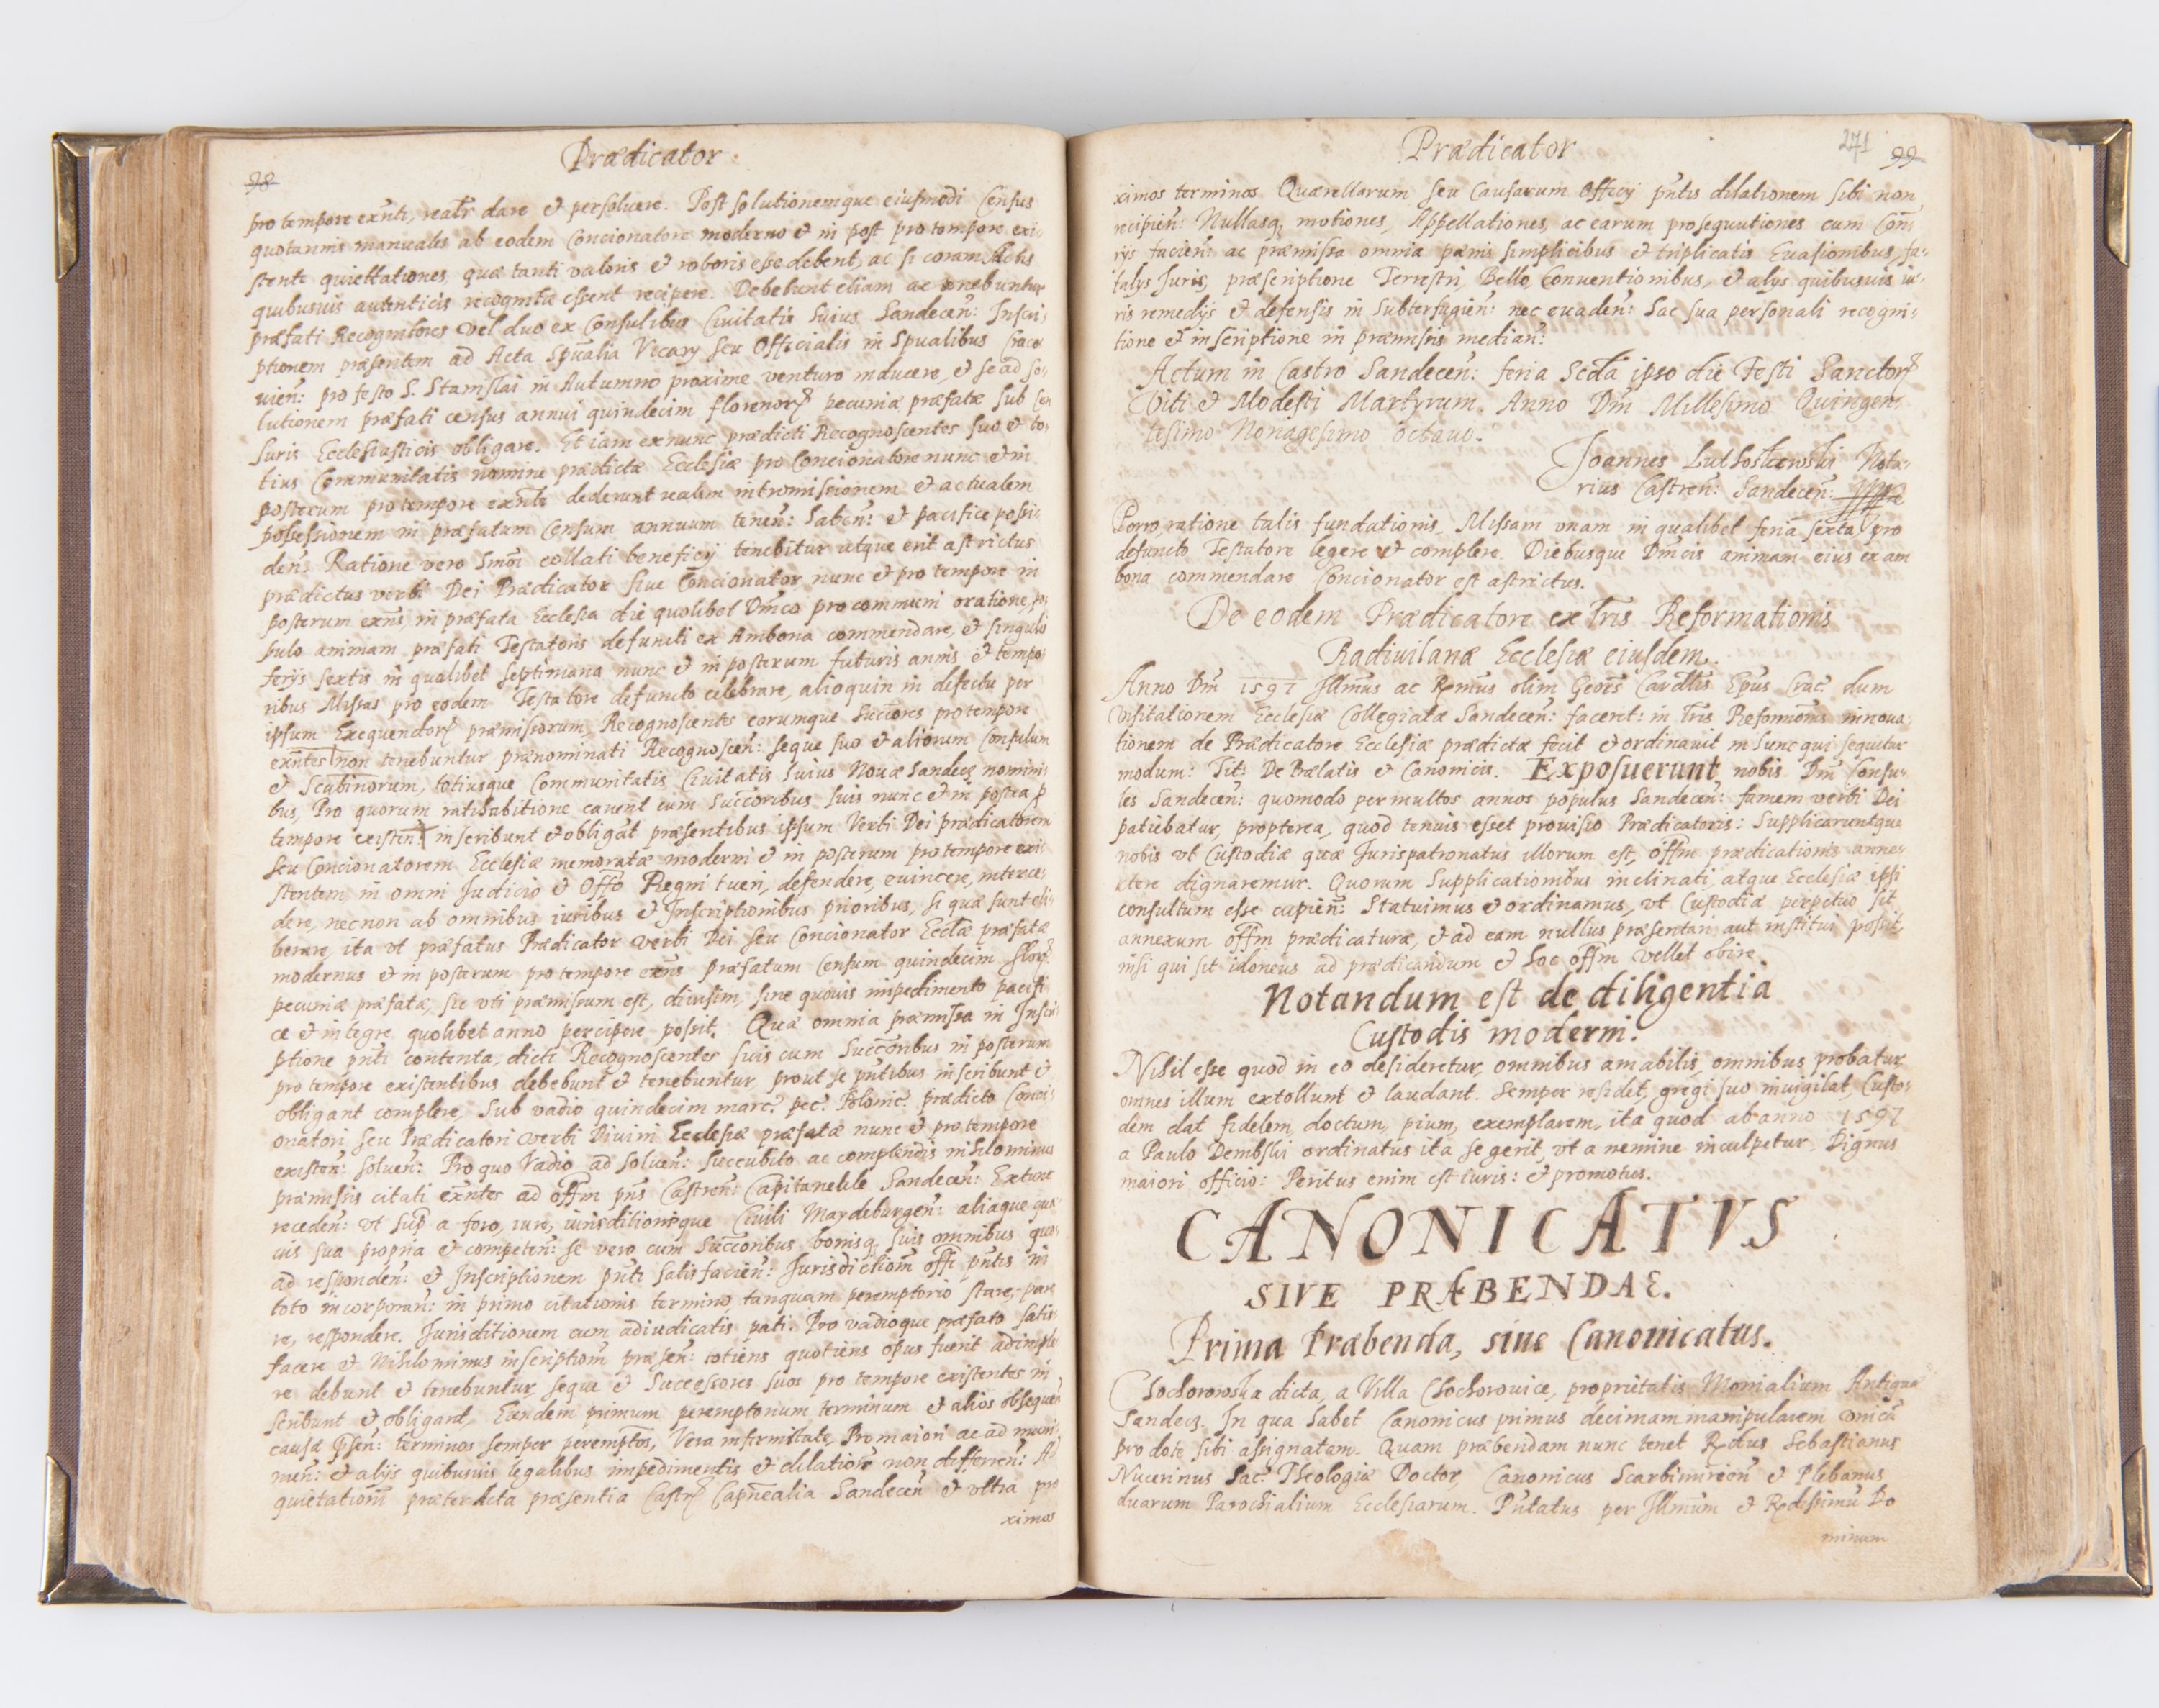 98
Prædicator
pro tempore exñti, realr dare et persoluere. Post solutionemque eiusmodi Census
quotannis manuales ab eodem Concionatore moderno et in post pro tempore exi
stente quiettationes, quæ tanti valoris et roboris esse debent, ac si coram Actis
quibusuis autenticis recognitæ essent recipere. Debebunt etiam ac tenebuntur
præfati Recognitores vel duo ex Consulibus Ciuitatis huius Sandecen̄: Inscri-
ptionem præsentem ad Acta Spūalia Vicarÿ seu Officialis in Spūalibus Craco
uien̄: pro festo S. Stanislai in Autumno proxime venturo inducere, et se ad so-
lutionem præfati census annui quindecim florenor pecuniæ præfatæ sub cen
suris Ecclesiasticis obligare. Et iam ex nunc prædicti Recognoscentes suo et to-
tius Communitatis nomine prædictæ Ecclesiæ pro Concionatore nunc et in
posterum pro tempore exñte dederunt realem intromissionem et actualem
possessionem in præfatum Censum annuum tenen̄: haben̄: et pacifice possi-
den̄: Ratione vero Smōi collati beneficÿ tenebitur utque erit astrictus
prædictus verbi Dei Prædicator siue Concionator nunc et pro tempore in
posterum exñs, in præfata Ecclesia die quolibet Dm̄co pro communi oratione, po-
pulo animam præfati Testatoris defuncti ex Ambona commendare, et singulis
ferÿs sextis in qualibet septimana nunc et in posterum futuris annis et tempo
ribus Missas pro eodem Testatore defuncto celebrare, alioquin in defectu per
ipsum Exequendor præmissorum, Recognoscentes eorumque Succōres pro tempore
exñtes non tenebuntur prænominati Recognoscen̄: seque suo et aliorum Consulum
et Scabinorum, totiusque Communitatis Ciuitatis huius Nouæ Sandecæ nomini-
bus, Pro quorum ratihabitione cauent cum Succōribus suis nunc et in postea p
tempore existen̄: inscribunt et obligāt præsentibus ipsum Verbi Dei prædicatorem
seu Concionatorem Ecclesiæ memoratæ moderni et in posterum pro tempore exi
stentem in omni Judicio et Offo Regni tueri, defendere, euincere, interce-
dere, necnon ab omnibus iuribus et Inscriptionibus prioribus, si quæ sunt eli-
berare, ita vt præfatus Prædicator verbi Dei seu Concionator Ecclæ præfatæ
modernus et in posterum pro tempore exñs præfatum Censum quindecim flor
pecuniæ præfatæ, sic vti præmissum est, diuisim, sine quouis impedimento pacifi
ce et integre quolibet anno percipere possit. Quæ omnia præmissa in Inscri
ptione pn̄ti contenta, dicti Recognoscentes suis cum Succōribus in posterum
pro tempore existentibus debebunt et tenebuntur, prout se pn̄tibus inscribunt et
obligant complere, Sub vadio quindecim marc: pec: Polonic: prædicto Conci-
onatori seu Prædicatori verbi Diuini Ecclesiæ præfatæ nunc et pro tempore
existen̄: soluen̄: Pro quo Vadio ad soluen̄: succubito ac complendis nihilominus
præmissis citati exñtes ad offm pn̄s Castren̄: Capitaneale Sandecen̄: Extunc
receden̄: vt sup a foro, iure, iurisditioneque Ciuili Maydeburgen̄: aliaque qua
uis sua propria et competen̄: se vero cum Succōribus bonisq suis omnibus quo
ad responden̄: et Inscriptionem pn̄ti satisfacien̄: Jurisdictiom offi pn̄tis in
toto incorporan̄: in primo citationis termino, tanquam peremptorio stare, pare
re, respondere. Jurisditionem cum adiudicatis pati. Pro vadioque præfato satis
facere et Nihilominus inscriptiom præsen̄: totiens quotiens opus fuerit adimple
re debunt et tenebuntur seque et Successores suos pro tempore existentes in
scribunt et obligant. Eundem primum peremptorium terminum et alios obsequen
causæ pn̄sen̄: terminos semper peremptos, Vera infirmitate, Pro maiori ac ad muni-
men: et alÿs quibusuis legalibus impedimentis et dilatione non differen̄: Ad
quietationem præter Acta præsentia Castr Capn̄ealia Sandecen̄ et vltra pro
ximos
Prædicator
271
99
ximos terminos Quærellarum seu Causarum Officÿ pn̄tis dilationem sibi non
recipien̄: Nullasq motiones, Appellationes, ac earum prosequutiones cum Com̄
rÿs facien̄: ac præmissa omnia pænis simplicibus et triplicatis Euasionibus, fa-
talÿs Juris, præscriptione Terrestri, Bello Conuentionibus, et alÿs quibusuis iu-
ris remedÿs et defensis in subterfugien̄: nec euaden̄: hac sua personali recogni-
tione et inscriptione in præmissis median̄:
Actum in Castro Sandecen̄: feria Scda ipso die Festi Sanctor
Viti et Modesti Martyrum. Anno Dm̄ Millesimo Quingen-
tesimo Nonagesimo octauo.
Joannes Luthosławski Nota-
rius Castren̄: Sandecen̄:
Porro, ratione talis fundationis, Missam vnam in qualibet feria sexta pro
defuncto Testatore legere et complere. Diebusque Dm̄cis animam eius ex am
bona commendare Concionator est astrictus.
De eodem Prædicatore ex Lris Reformationis
Radiuilanæ Ecclesiæ eiusdem.
Anno Dm̄ 1597 Illm̄us ac Rm̄us olim Georš Cardlis Epus Crac: dum
visitationem Ecclesiæ Collegiatæ Sandecen̄: faceret: in Lris Reformōnis innoua-
tionem de Prædicatore Ecclesiæ prædictæ fecit et ordinauit in hunc qui sequitur
modum: Tit: De Prælatis et Canonicis. Exposuerunt nobis Dm̄ Consu-
les Sandecen̄: quomodo per multos annos populus Sandecen̄: famem verbi Dei
patiebatur, propterea, quod tenuis esset prouisio Prædicatoris: Supplicaruntque
nobis vt Custodiæ quæ Jurispatronatus illorum est, offm prædicationis anne-
ctere dignaremur. Quorum Supplicationibus inclinati, atque Ecclesiæ ipsi
consultum esse cupien̄: Statuimus et ordinamus, vt Custodiæ perpetuo sit
annexum offm prædicaturæ, et ad eam nullus præsentari aut institui possit,
nisi qui sit idoneus ad prædicandum et hoc offm vellet obire.
Notandum est de diligentia
Custodis moderni.
Nihil esse quod in eo desideretur, omnibus amabilis, omnibus probatur,
omnes illum extollunt et laudant. Semper residet, gregi suo inuigilat, Custo-
dem dat fidelem, doctum, pium, exemplarem, ita quod ab anno 1597
a Paulo Dembski ordinatus ita se gerit, vt a nemine inculpetur. Dignus
maiori officio: Peritus enim est iuris: et promotus.
CANONICATVS
SIVE PRÆBENDAE.
Prima Præbenda, siue Canonicatus.
Chochorowska dicta, a Villa Chochorouice, proprietatis Monialium Antiquæ
Sandecz. In qua habet Canonicus primus decimam manipularem vnicā
pro dote sibi assignatam. Quam præbendam nunc tenet Rdus Sebastianus
Nucerinus Sac: Theologiæ Doctor, Canonicus Scarbimirien̄ et Plebanus
duarum Parochialium Ecclesiarum. Pn̄tatus per Illm̄um et Rdissimū Do
minum